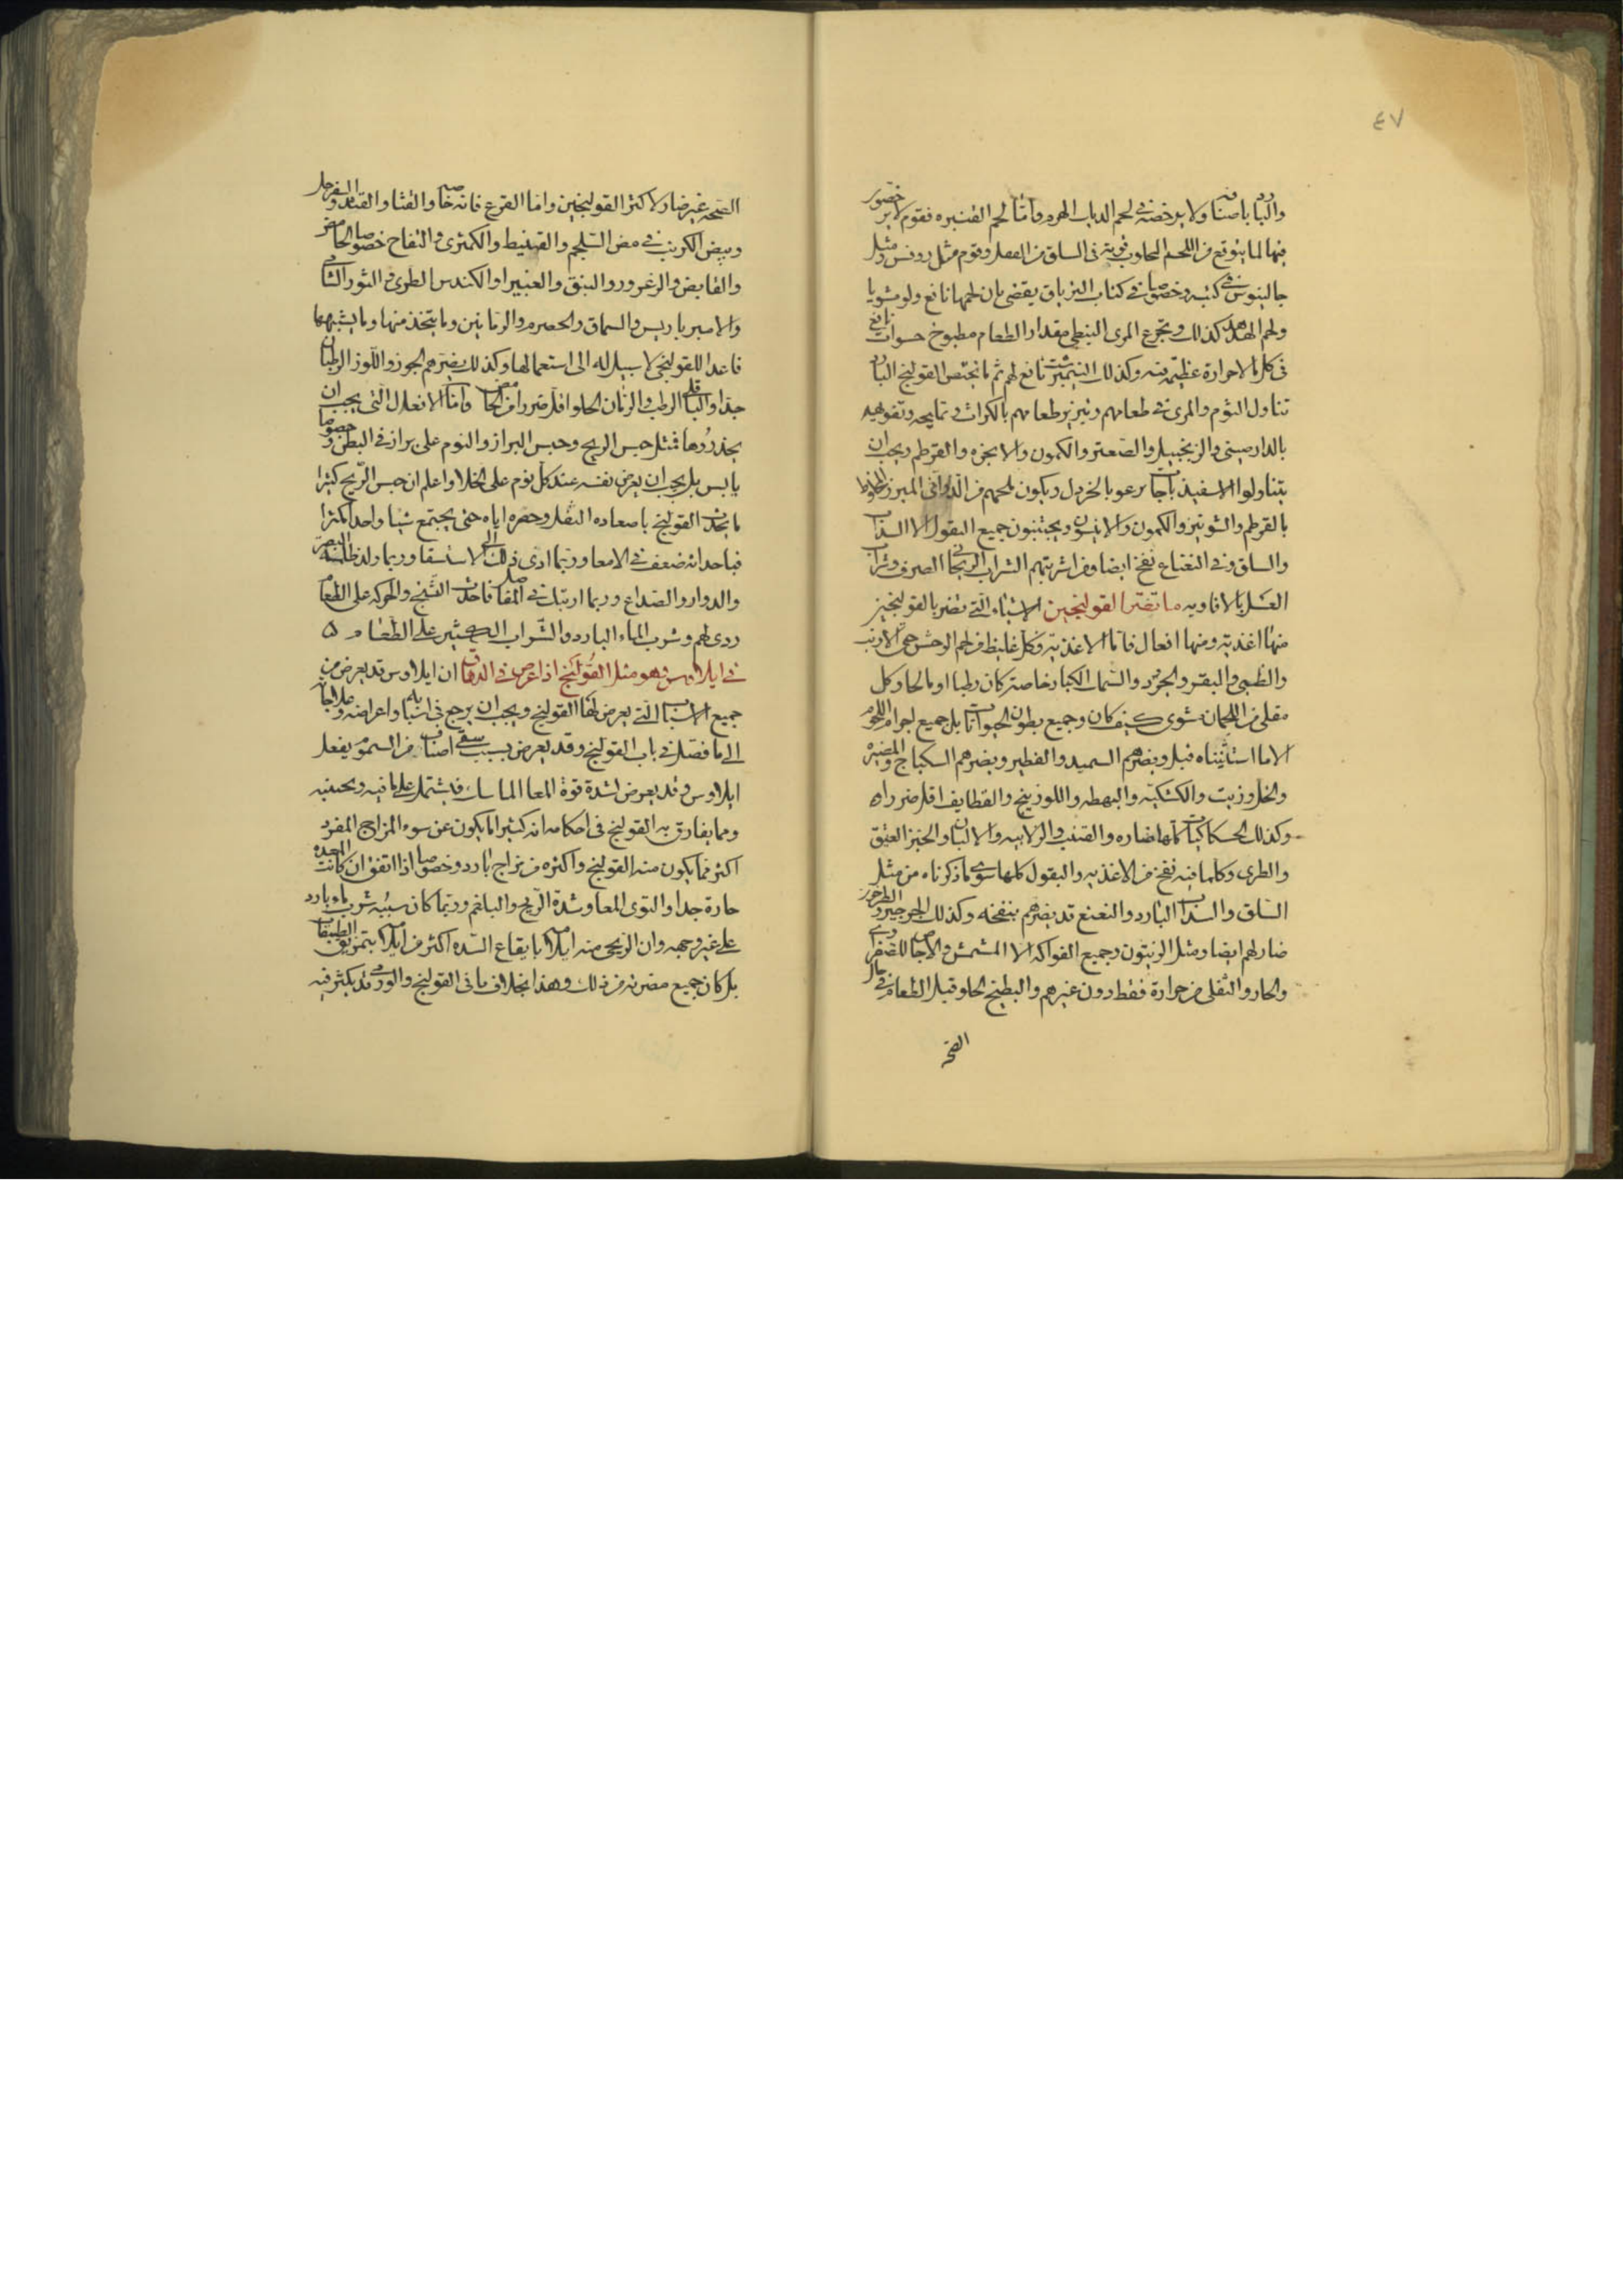 ٤٧
والبارد باصنافه ولا يرخصه في لحم الديك الهرم واما لحم القنبره فقوم لا يرخصون
فيها لما يتوقع من اللحم المجاوب قوته في الساق من العقل وقوم مثل روفس ومثل
جالينوس في كتبه وخصوصا في كتاب الترياق يقضى بان لحمها نافع ولو مشويا
ولحم الهدهد كذلك وتجرع المرى النبطي مقدار الطعام مطبوخ حسوات نافع
في كل ما لا حرارة عظيمة فيه وكذلك نافع لهم ثم ما يختص القولنج البارد
تناول الثوم والمرى في طعامهم وتبزير طعامهم بالكراث في تمليحه وتفويهه
بالدارصيني والزنجبيل والصعتر والكمون والانجره والقرطم ويجب ان
يتناولوا الاسفيذباجات برغوة الخردل ويكون ملحهم من الدرانى المبزر المخلوط
بالقرطم والشونيز والكمون والانيسون ويجتنبون جميع البقول الا السذاب
والسلق وفي النعناع نفخ ايضا ومن اشربتهم الشراب الريحاني الصرف وشراب
العسل بالافاويه ما تضر القولنجين الاشياء التي تضر بالقولنجين
منها اغذية ومنها افعال فاما الاغذية فكل غليظ من لحم الوحش حتى الارنب
والظبي والبقر والجزر والسمك الكبار خاصة كان رطبا او مالحا وكل
مقلى من اللحمان مشوى كيف كان وجميع بطون الحيوانات بل جميع اجرام اللحوم
الا ما استثنيناه قبل ويضرهم السميد والفطير ويضرهم السكباج والمضيره
والخل وزيت والكشكيه والبهطه واللوزينج والقطايف اقل ضررا
وكذلك كلها ضاره والقنب والزلابيه والالبان والخبز العتيق
والطرى وكلما فيه نفخ من الاغذيه والبقول كلها سوى ما ذكرناه من مثل
السلق والسذاب البارد والنعنع قد يضرهم بنفخه وكذلك الجرجير والطرخون
ضار لهم ايضا ومثل الزيتون وجميع الفواكه الا المشمش والاجاص للصفراوى
والحار والثفلى من حرارة فقط دون غيرهم والبطيخ الحلو قبل الطعام في حال
الصحه
الصحة غير ضار لاكثر القولنجيين واما القرع فانه خاصه والقثا والقثد والسفرجل
وبيض الكرنب في مض السلجم والقنبيط والكمثرى والتفاح خصوصا الحامض
والقابض والزعرور والنبق والغبيرا والكندس الطرى والتوت الشامي
والامبر باريس والسماق والحصرم والرمانين وما يتخذ منها وما يشبهها
فاعدا للقولنجي لا سبيل له الى استعمالها وكذلك يضرهم الجوز واللوز الرطبان
جدا والباقلى الرطب والرمان الحلو اقل ضررا من الحامض واما الافعال التي يجب ان
يحذروها فمثل حبس الريح وحبس البراز والنوم على براز في البطن وخصوصا
يابس بل يجب ان يعرض نفسه عند كل نوم على الخلا واعلم ان حبس الريح كثيرا
ما يحدث القولنج باصعاده الثفل وحصره اياه حتى يجتمع شيا واحدا مكتنزا
فباحداثه ضعف في الامعا وربما ادى ذلك الى الاستسقا وربما ولد ظلمة البصر
والدوار والصداع وربما ارتبك في المفاصل فاحدث التشنج والحركه على الطعام
ردى لهم وشرب الماء البارد والشراب الكثير على الطعام ٥
في ايلاوس وهو مثل القولنج اذا عرض في الدقاق ان ايلاوس قد يعرض من
جميع الاسباب التي يعرض لها القولنج ويجب ان يرجع في اسبابه واعراضه وعلاجاته
الى ما فصل في باب القولنج وقد يعرض بسبب سقى اصناف من السموم يفعل
ايلاوس وقد يعرض لشدة قوة المعا الماساك فيشتمل على ما فيه ويحبسه
ومما يفارق به القولنج في احكامه انه كثيرا ما يكون عن سوء المزاج المفرد
اكثر مما يكون منه القولنج واكثره من مزاج بارد وخصوصا اذا اتفق ان كانت المعده
حارة جدا والتوى المعا وشدة الريح والبلغم وربما كان سببه شرب ماء بارد
على غير وجهه وان الريحي منه ايلاما بايقاع السده اكثر من ايلامه بتمزيق الطبقات
بل كان جميع مضرته من ذلك وهذا بخلاف ما في القولنج والورمى قد يكثر فيه